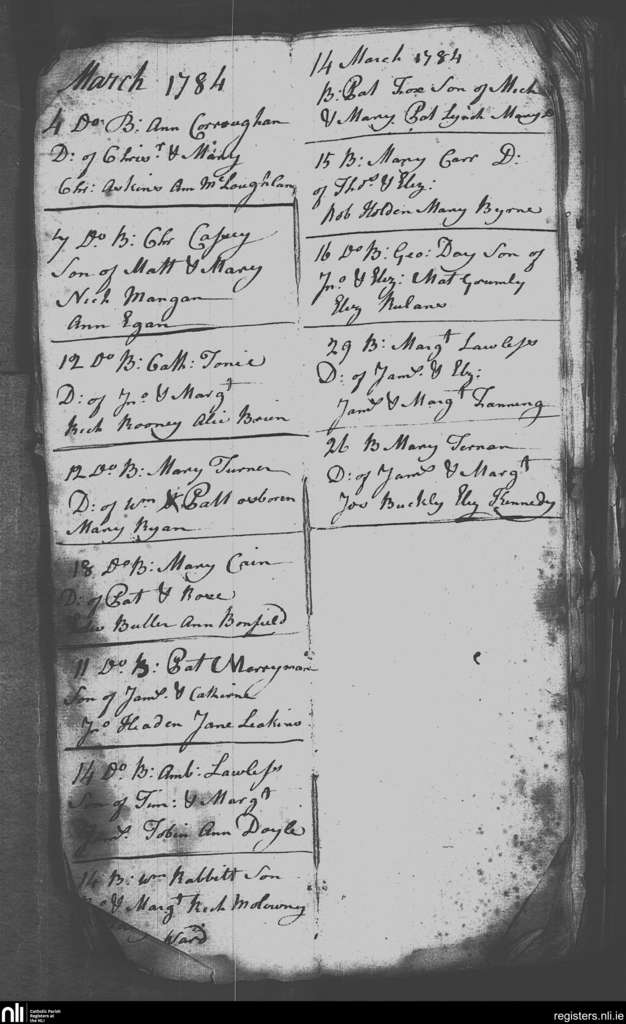 March 1784
4 Do B: Ann Corroughan
D: of Chrisr & Mary
Chr: Askins Ann McLoughlan
7 Do B: Chr Casey
Son of Matt & Mary
Nich Mangan
Ann Egan
12 Do B: Cath: Tonie
D: of Jno & Margt
Rich Rooney Alie Brien
12 Do B: Mary Turner
D: of Wm & Patt osboren
Mary Ryan
18 Do B: Mary Crin
D: of Pat & Rose
Butler Ann Bonfield
11 Do B: Pat Merryman
Son of Jams. & Catherine
Jno Headen Jane Leakins
14 Do B: Amb: Lawless
Son of Tim: & Margt
Jams. Tobin Ann Doyle
14 B: Wm Rabbitt Son
& Margt Rich Molowney
Ward
14 March 1784
B: Pat Fox Son of Mich
& Mary Pat Lynch Mary
15 B: Mary Carr D:
of Thos & Eliz:
Rob Holden Mary Byrne
16 Do B: Geo: Day Son of
Jno & Eliz: Mat Gormly
Eliz Rulans
29 B: Margt Lawless
D: of Jams. & Eliz:
Jams & Margt Fanning
26 B Mary Ternan
D: of Jams & Margt
Jos Buckly Eliz Kennedy
nli
Catholic Parish
Registers at
the NLI
registers.nli.ie